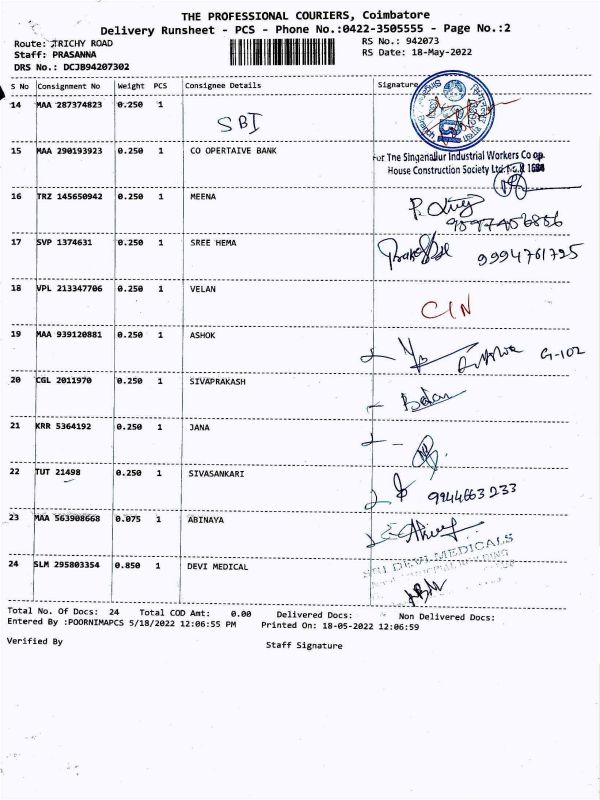 THE PROFESSIONAL COURIERS, Coimbatore
Delivery Runsheet - PCS - Phone No.:0422-3505555 - Page No.:2
Route: TRICHY ROAD RS No.: 942073
Staff: PRASANNA RS Date: 18-May-2022
DRS No.: DCJB94207302
S No Consignment No Weight PCS Consignee Details Signature
14 MAA 287374823 0.250 1 SBI
15 MAA 290193923 0.250 1 CO OPERTAIVE BANK
For The Singanallur Industrial Workers Co op.
House Construction Society Ltd.
16 TRZ 145650942 0.250 1 MEENA
17 SVP 1374631 0.250 1 SREE HEMA 9994761725
18 VPL 213347706 0.250 1 VELAN CIN
19 MAA 939120881 0.250 1 ASHOK G-102
20 CGL 2011970 0.250 1 SIVAPRAKASH
21 KRR 5364192 0.250 1 JANA
22 TUT 21498 0.250 1 SIVASANKARI 9944663233
23 MAA 563908668 0.075 1 ABINAYA
24 SLM 295803354 0.850 1 DEVI MEDICAL
SRI DEVI MEDICALS
Total No. Of Docs: 24 Total COD Amt: 0.00 Delivered Docs: Non Delivered Docs:
Entered By :POORNIMAPCS 5/18/2022 12:06:55 PM Printed On: 18-05-2022 12:06:59
Verified By Staff Signature